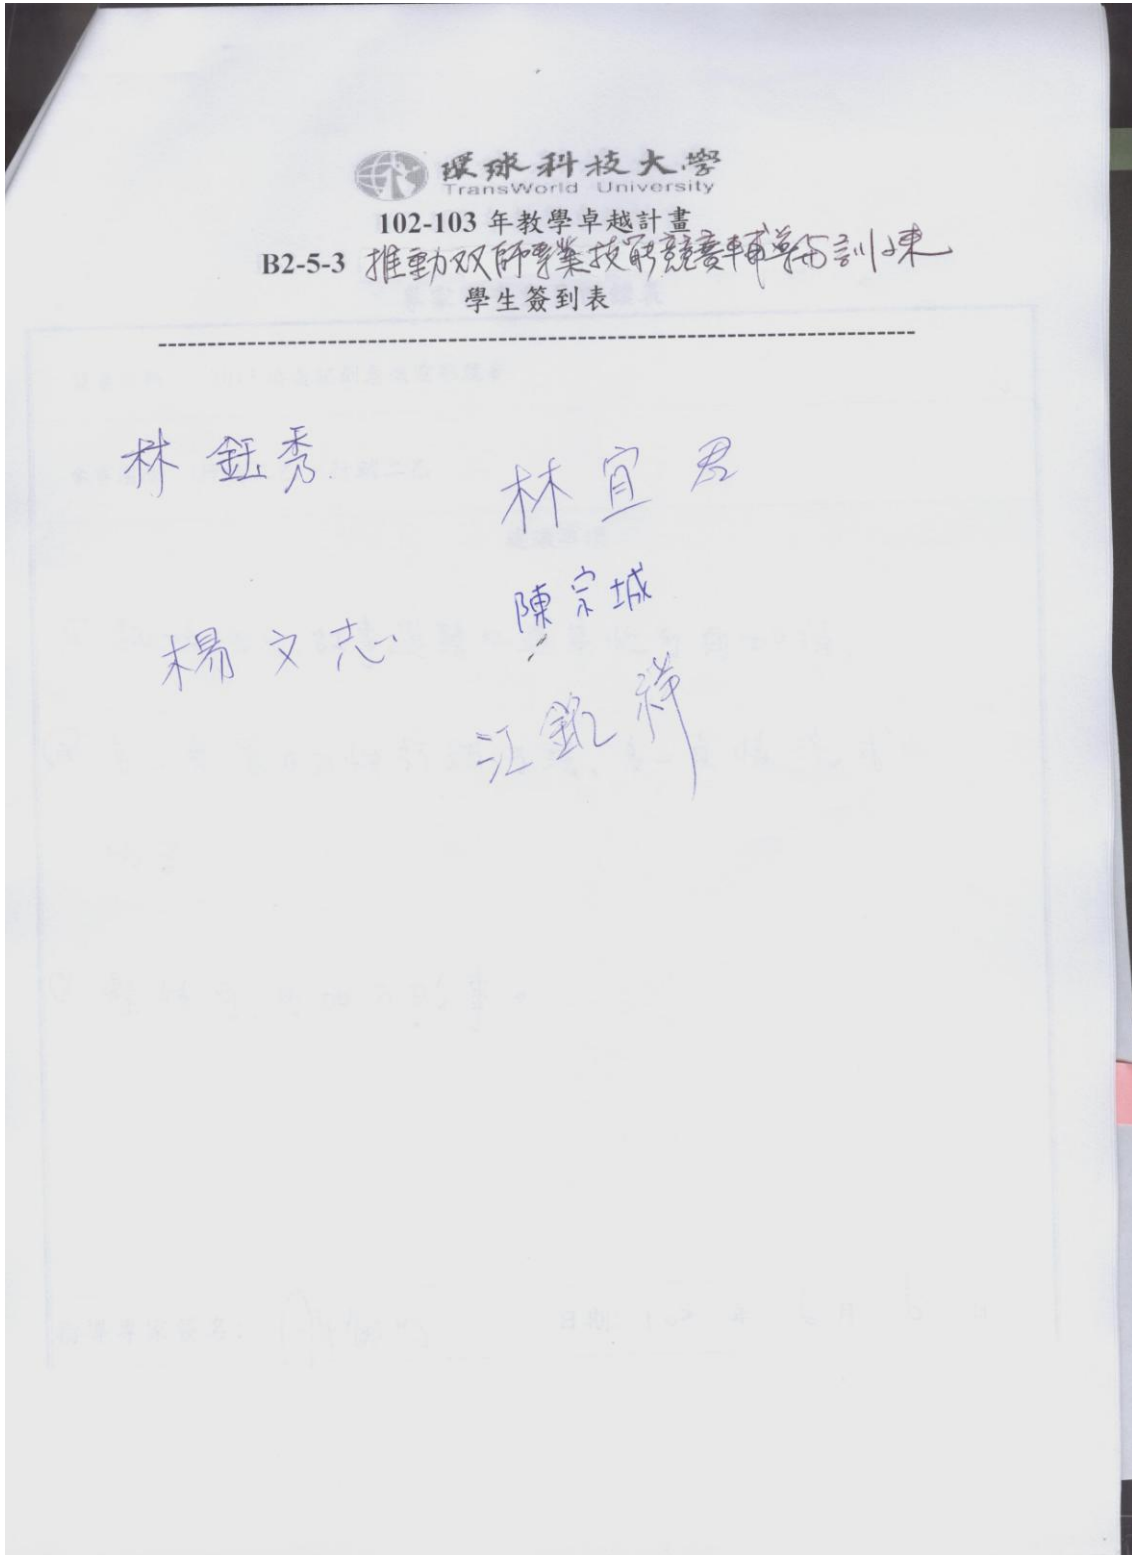 環球科技大學
TransWorld University
102-103 年教學卓越計畫
B2-5-3 推動双師專業技能競賽輔導與訓練
學生簽到表
林鈺秀
林宜君
陳宗城
楊文志
江銘祥